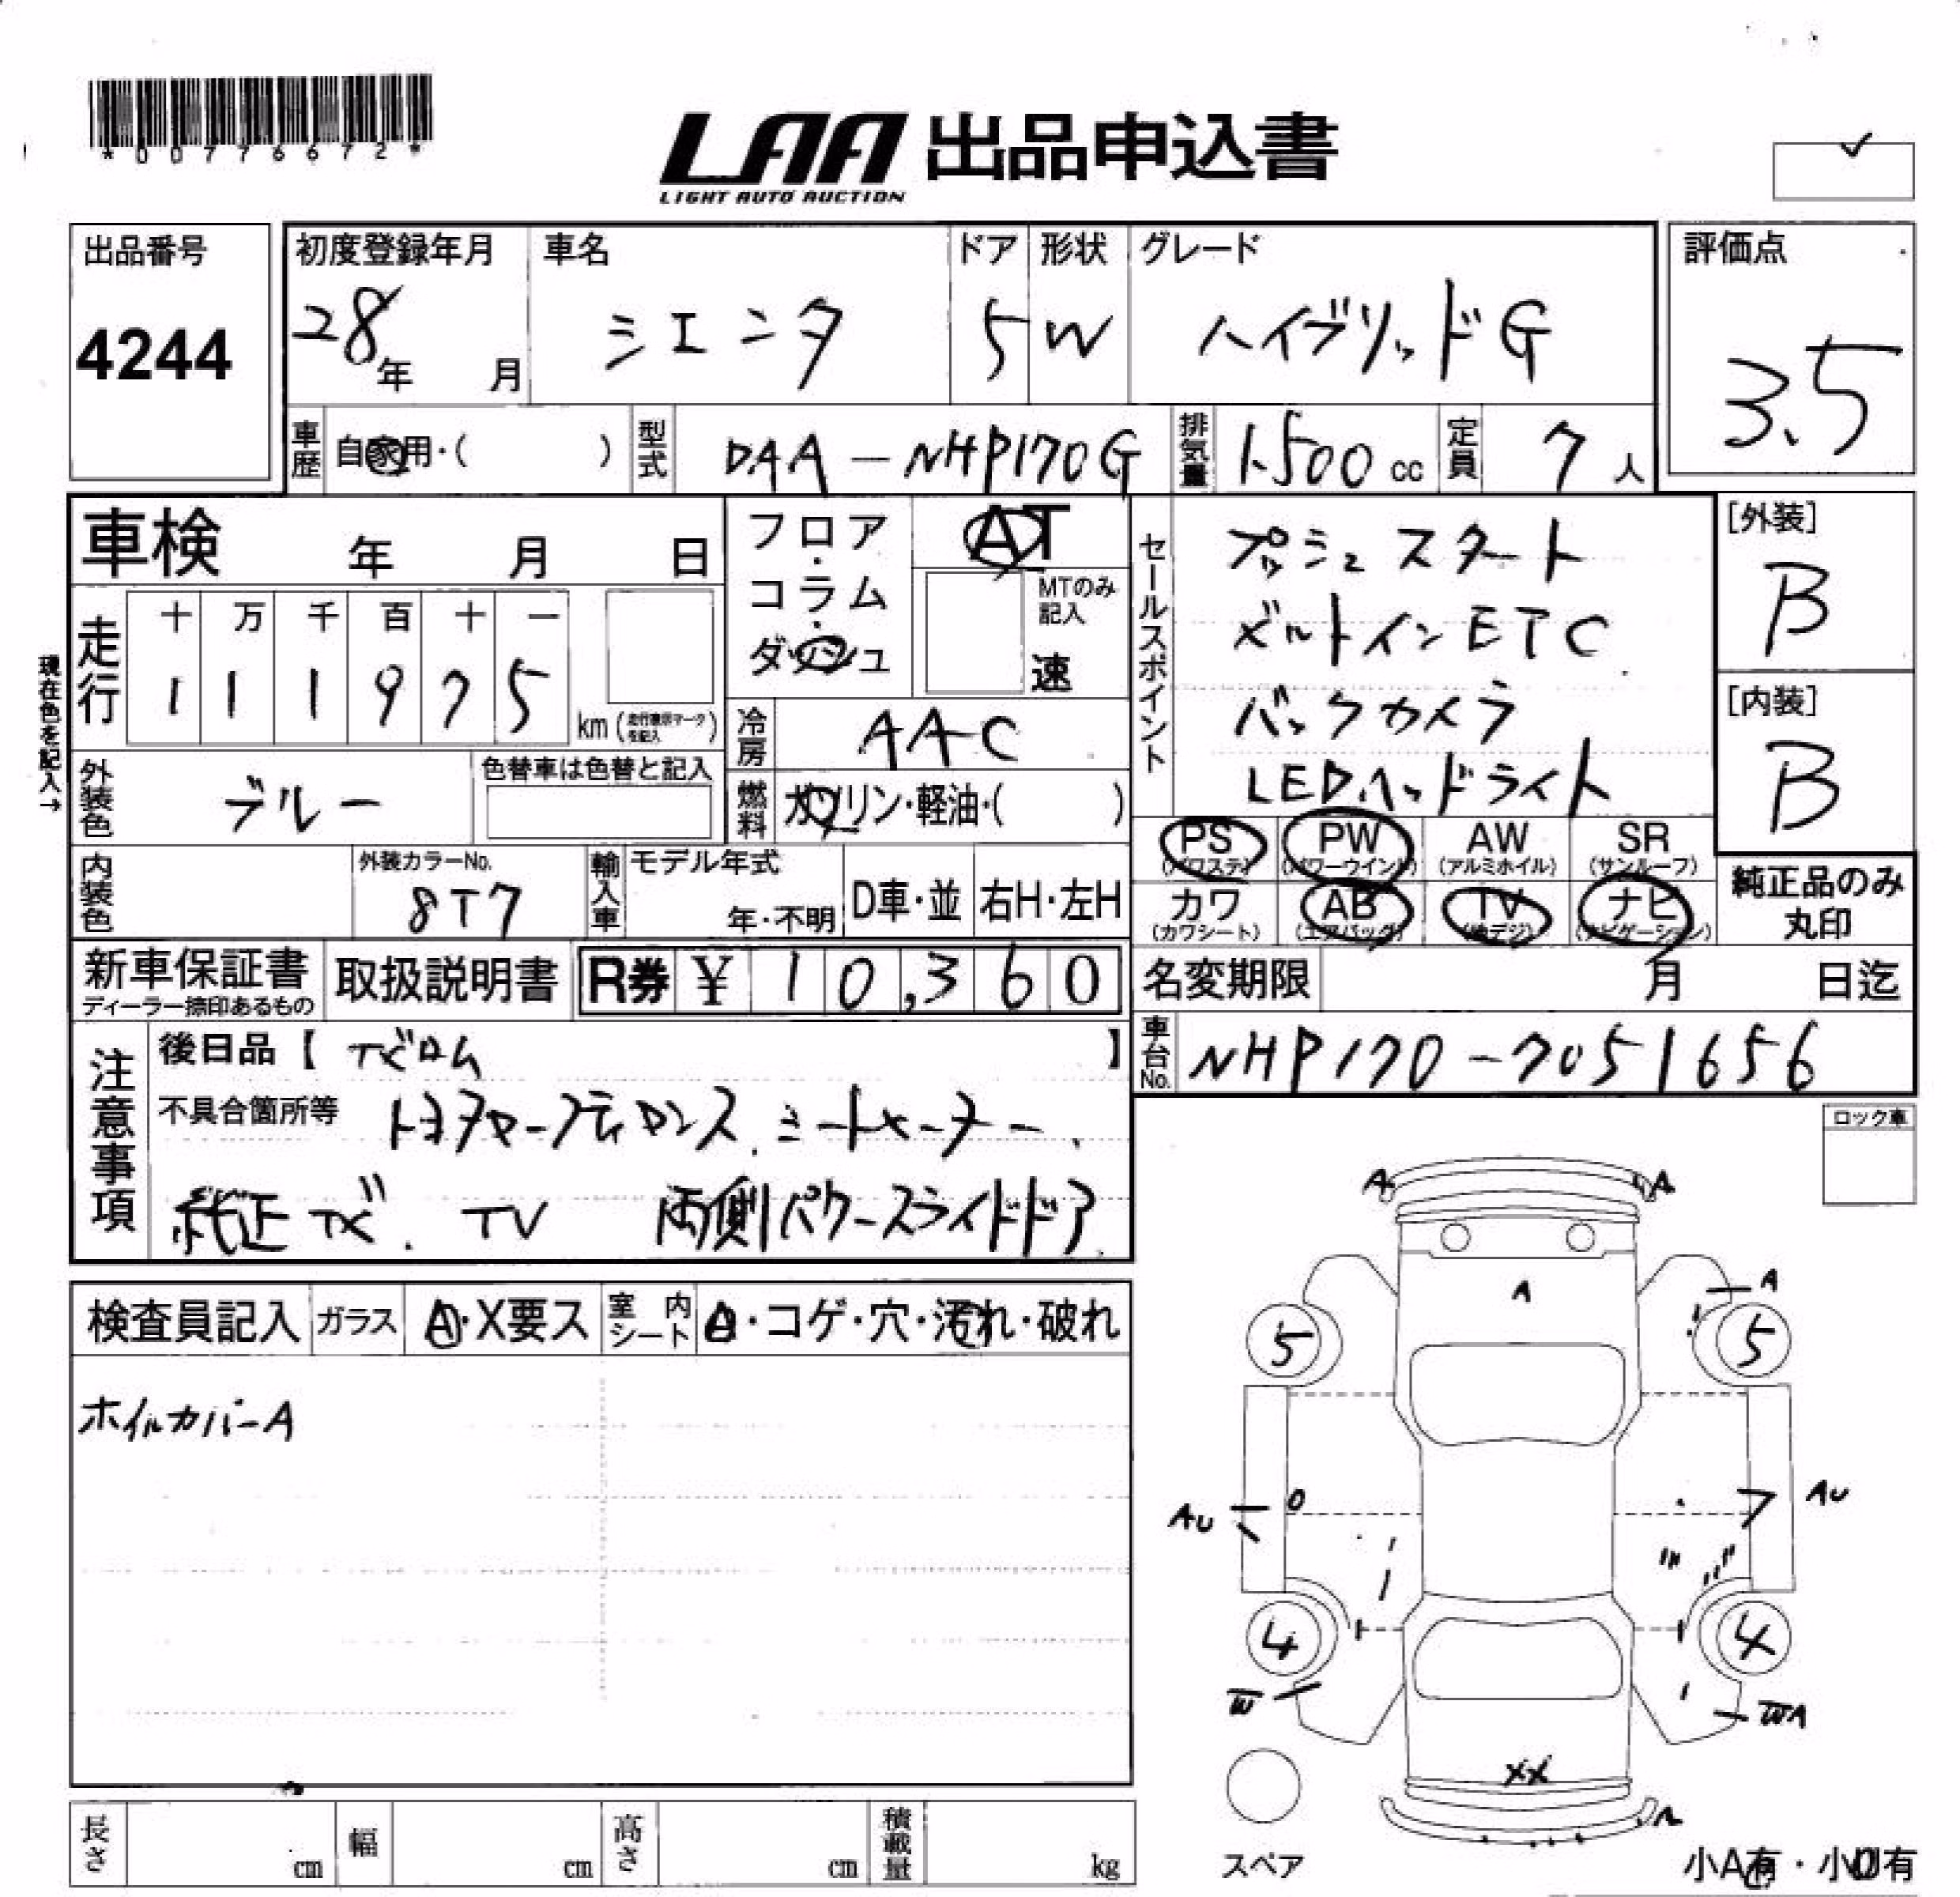 *00776672*
LAA 出品申込書
LIGHT AUTO AUCTION
出品番号
4244
初度登録年月
28年 月
車名
シエンタ
ドア
5
形状
W
グレード
ハイブリッドG
評価点
3.5
車歴 自家用・( )
型式 DAA-NHP170G
排気量 1500cc
定員 7人
車検 年 月 日
フロア・コラム・ダッシュ
AT
MTのみ記入
速
走行
十 万 千 百 十 一
1 1 1 9 7 5
km (走行表示マークを記入)
現在色を記入→
冷房 AAC
外装色 ブルー
色替車は色替と記入
燃料 ガソリン・軽油・( )
内装色
外装カラーNo.
8T7
輸入車
モデル年式
年・不明
D車・並
右H・左H
セールスポイント
プッシュスタート
ビルトインETC
バックカメラ
LEDヘッドライト
[外装]
B
[内装]
B
PS (パワステ)
PW (パワーウインド)
AW (アルミホイル)
SR (サンルーフ)
カワ (カワシート)
AB (エアバッグ)
TV (地デジ)
ナビ (ナビゲーション)
純正品のみ丸印
新車保証書
ディーラー捺印あるもの
取扱説明書
R券 ¥ 10,360
名変期限 月 日迄
車台No. NHP170-7051656
注意事項
後日品【 】
不具合箇所等
シートヒーター、
純正ナビ. TV 両側パワースライドドア
ロック車
検査員記入
ガラス A・X要ス
室内シート A・コゲ・穴・汚れ・破れ
ホイルカバーA
A A
A
A
5 5
AU AU
4 4
W WA
XX
スペア
小A有・小U有
長さ cm
幅 cm
高さ cm
積載量 kg